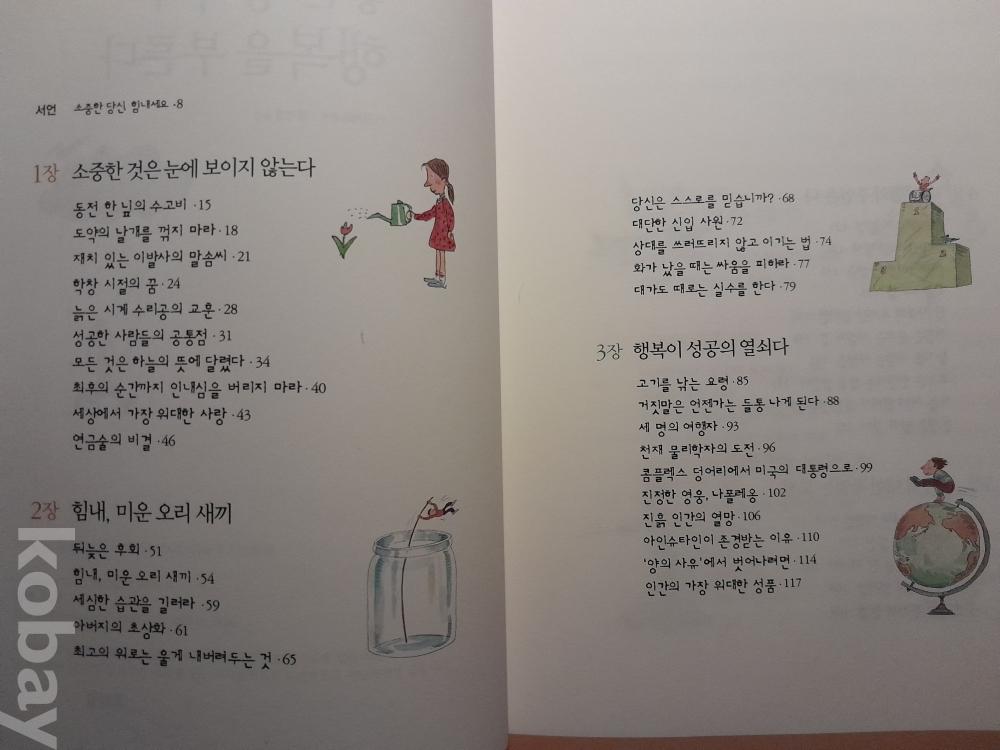 서언 소중한 당신 힘내세요 · 8
1장 소중한 것은 눈에 보이지 않는다
동전 한 닢의 수고비 · 15
도약의 날개를 꺾지 마라 · 18
재치 있는 이발사의 말솜씨 · 21
학창 시절의 꿈 · 24
늙은 시계 수리공의 교훈 · 28
성공한 사람들의 공통점 · 31
모든 것은 하늘의 뜻에 달렸다 · 34
최후의 순간까지 인내심을 버리지 마라 · 40
세상에서 가장 위대한 사랑 · 43
연금술의 비결 · 46
2장 힘내, 미운 오리 새끼
뒤늦은 후회 · 51
힘내, 미운 오리 새끼 · 54
세심한 습관을 길러라 · 59
아버지의 초상화 · 61
최고의 위로는 울게 내버려두는 것 · 65
당신은 스스로를 믿습니까? · 68
대단한 신입 사원 · 72
상대를 쓰러뜨리지 않고 이기는 법 · 74
화가 났을 때는 싸움을 피하라 · 77
대가도 때로는 실수를 한다 · 79
3장 행복이 성공의 열쇠다
고기를 낚는 요령 · 85
거짓말은 언젠가는 들통 나게 된다 · 88
세 명의 여행자 · 93
천재 물리학자의 도전 · 96
콤플렉스 덩어리에서 미국의 대통령으로 · 99
진정한 영웅, 나폴레옹 · 102
진흙 인간의 열망 · 106
아인슈타인이 존경받는 이유 · 110
'양의 사유'에서 벗어나려면 · 114
인간의 가장 위대한 성품 · 117
kobay